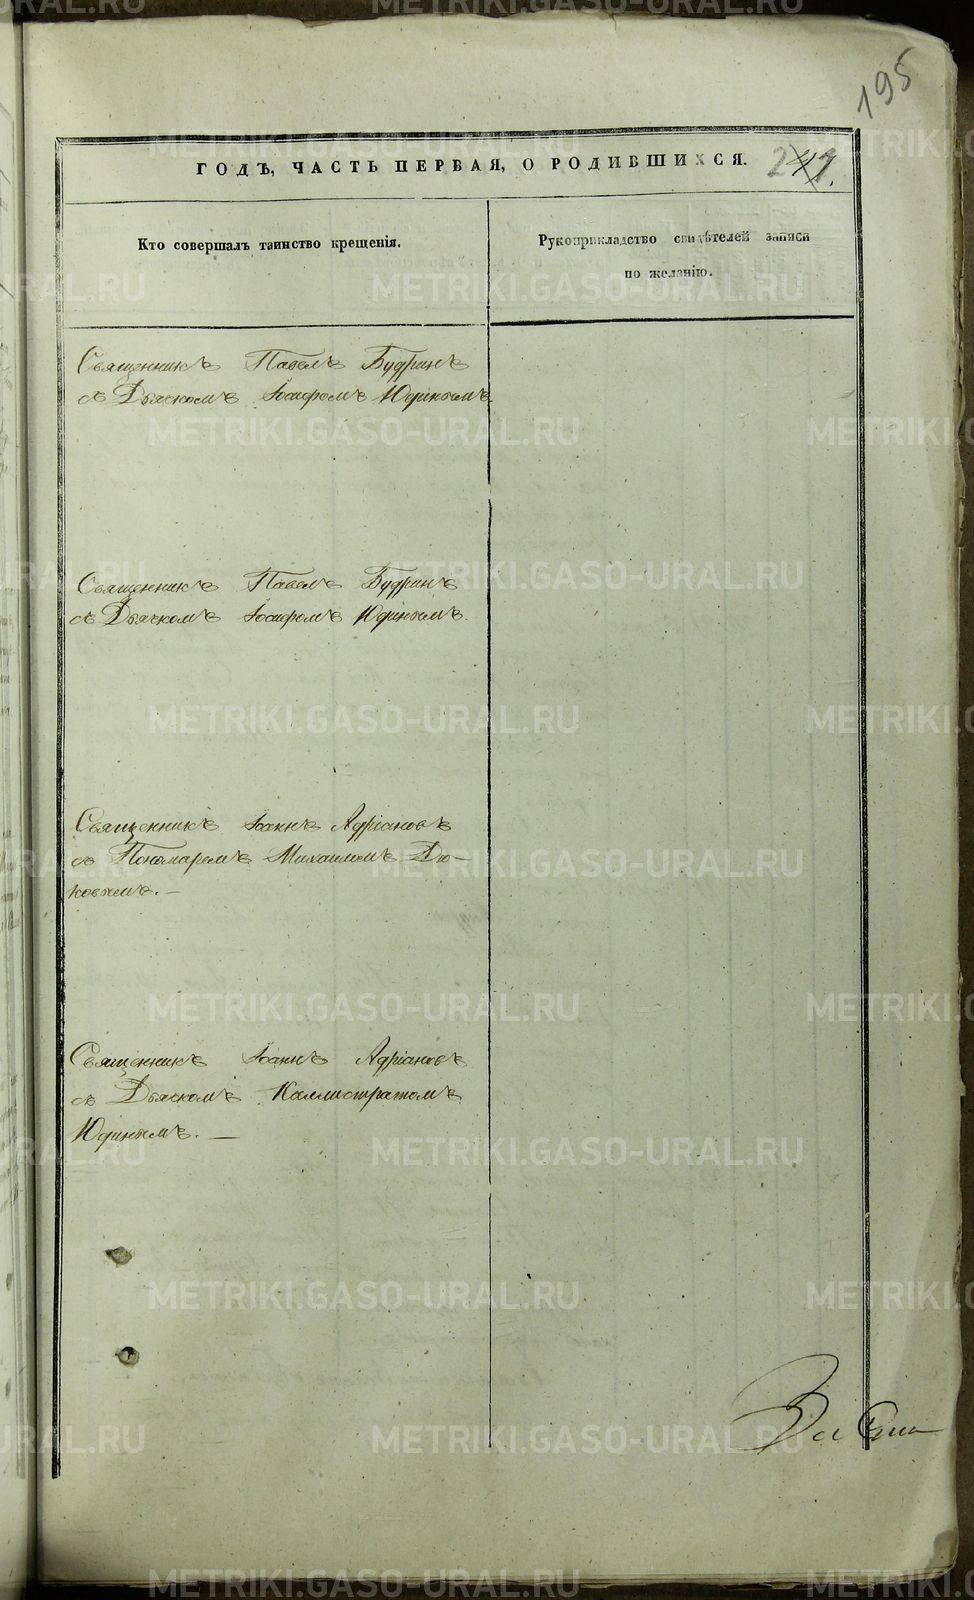 195
ГОДЪ, ЧАСТЬ ПЕРВАЯ, О РОДИВШИХСЯ.
Кто совершалъ таинство крещенія.
Рукоприкладство свидѣтелей записи
по желанію.
Священникъ Павелъ Будринъ
съ Дьячкомъ Іосифомъ Юдинымъ
Священникъ Павелъ Будринъ
съ Дьячкомъ Іосифомъ Юдинымъ.
Священникъ Іоаннъ Адріановъ
съ Пономаремъ Михаиломъ Дю-
ковымъ. —
Священникъ Іоаннъ Адріановъ
съ Дьячкомъ Каллистратомъ
Юдинымъ. —
METRIKI.GASO-URAL.RU